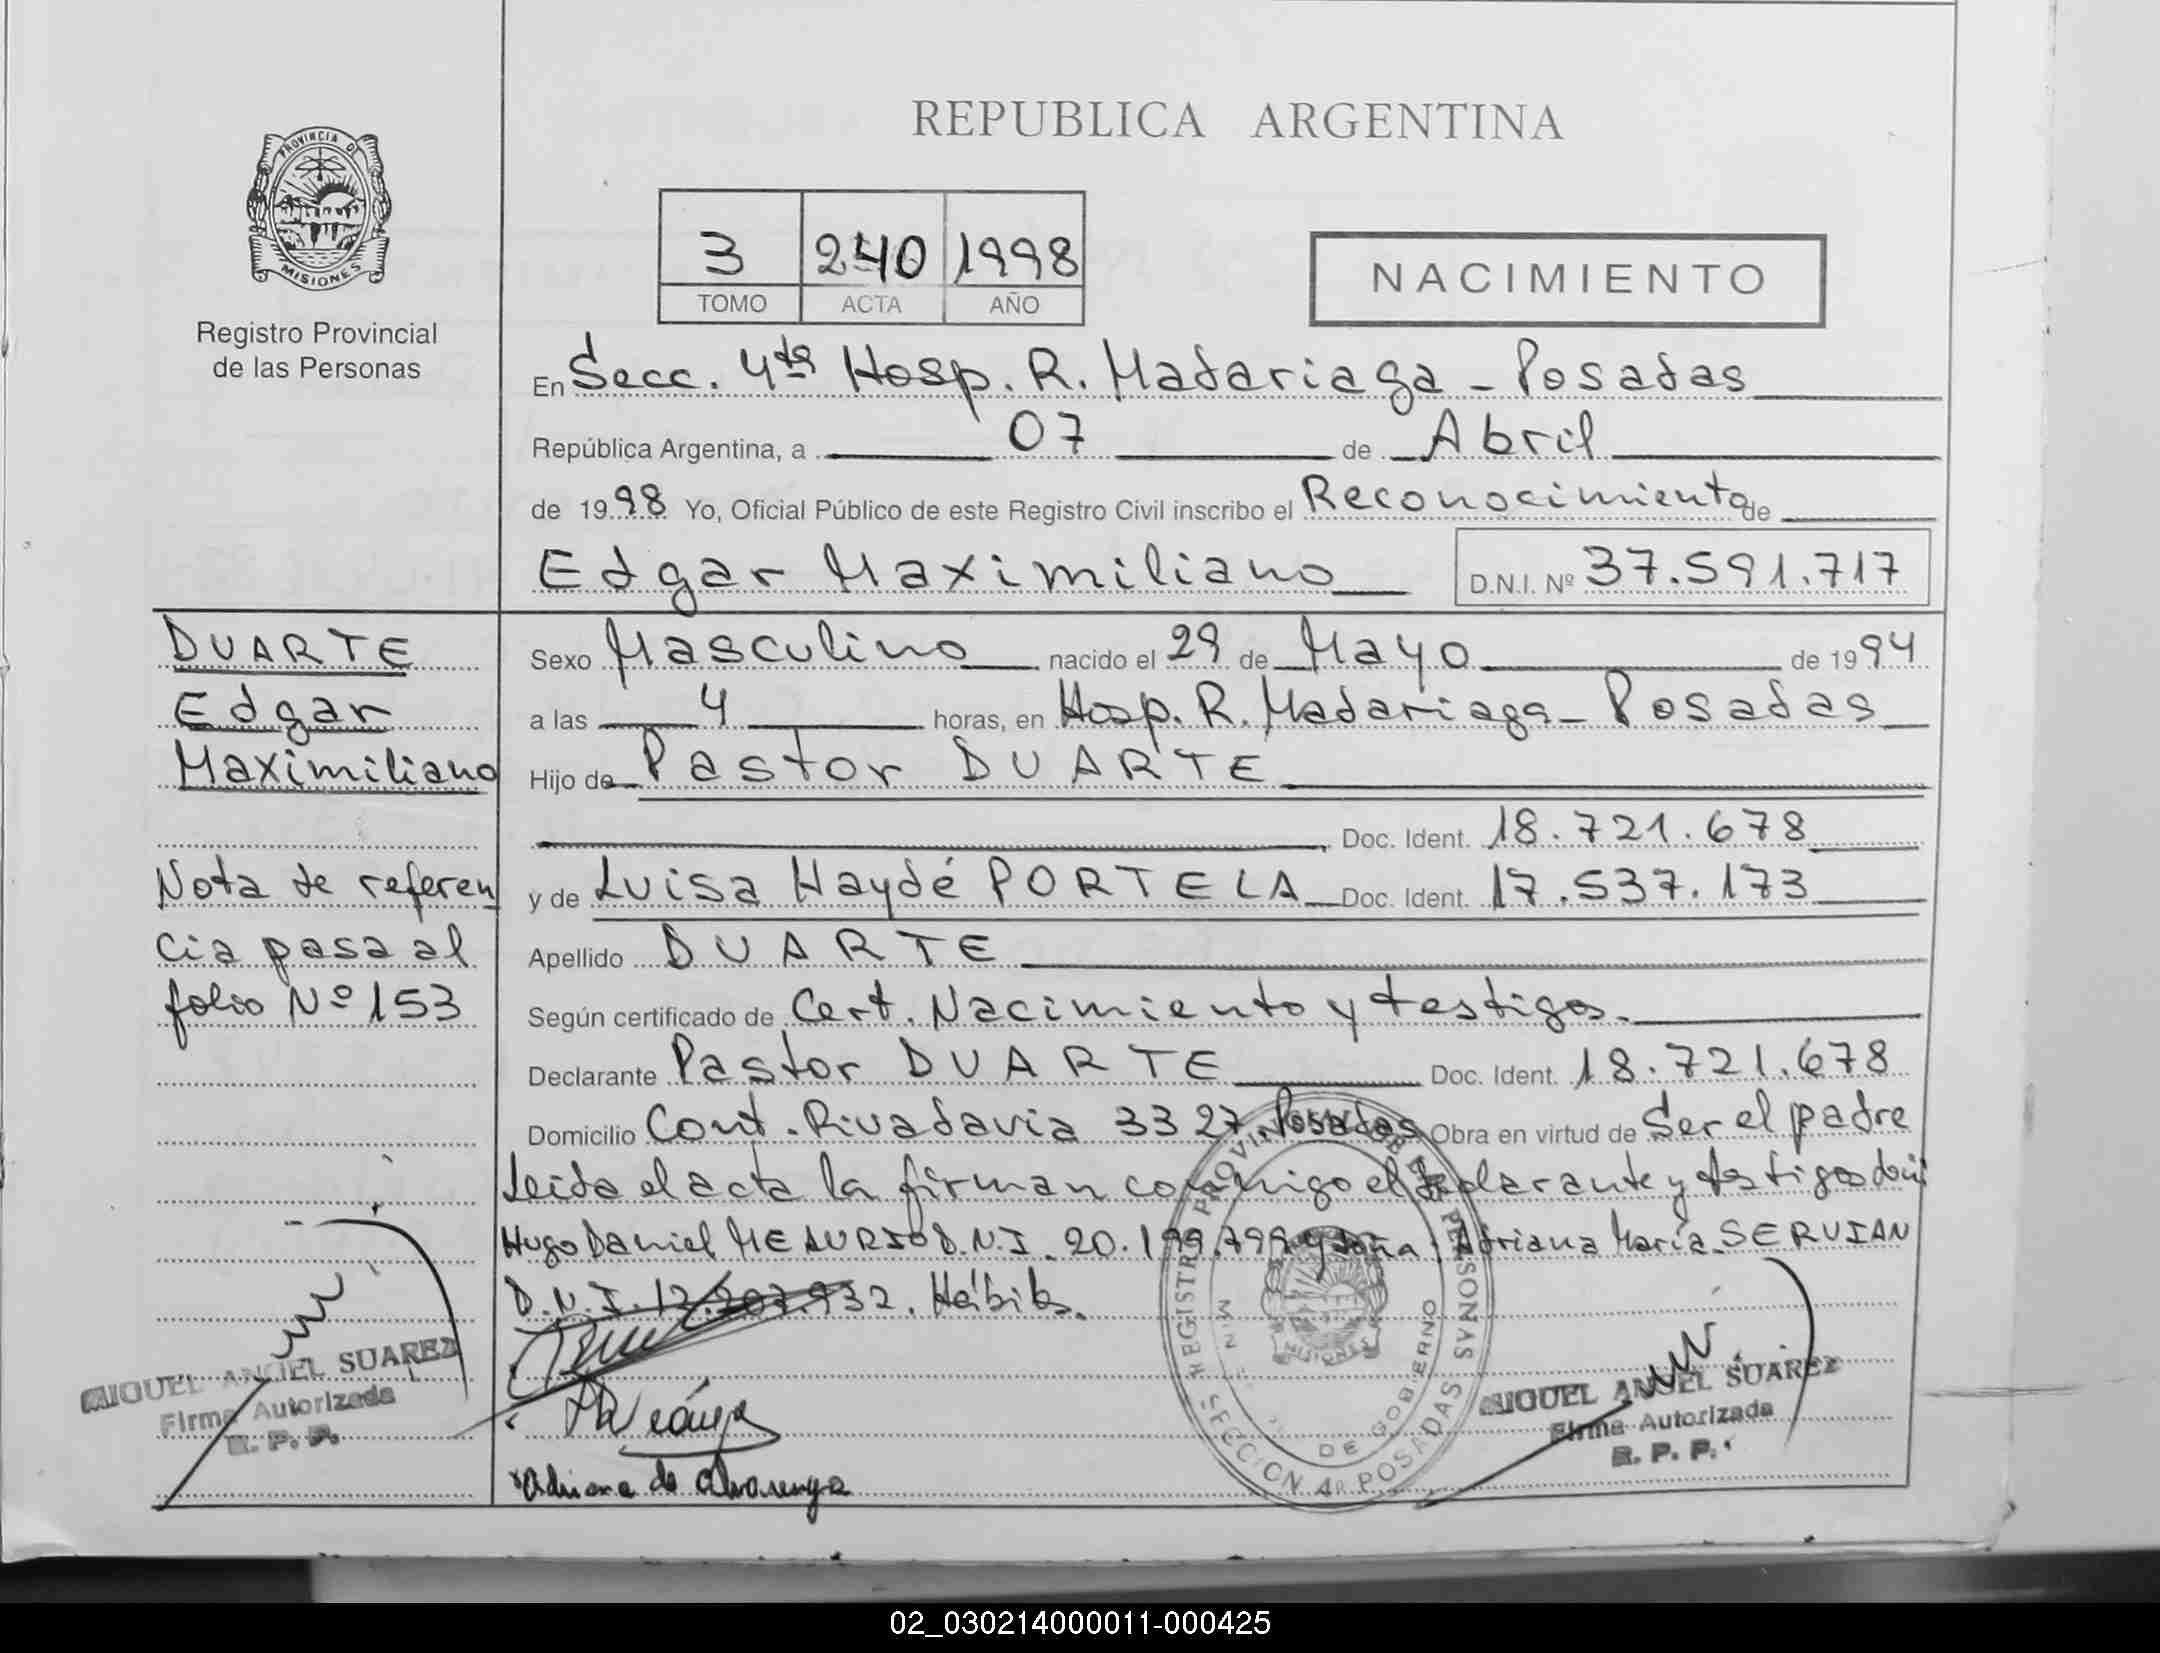 REPUBLICA ARGENTINA
PROVINCIA DE
MISIONES
Registro Provincial
de las Personas
3 240 1998
TOMO ACTA AÑO
NACIMIENTO
En Secc. 4ta Hosp. R. Madariaga - Posadas
República Argentina, a 07 de Abril
de 1998 Yo, Oficial Público de este Registro Civil inscribo el Reconocimiento de
Edgar Maximiliano D.N.I. Nº 37.591.717
DUARTE
Edgar
Maximiliano
Nota de referen
cia pasa al
folio Nº 153
Sexo Masculino nacido el 29 de Mayo de 1994
a las 4 horas, en Hosp. R. Madariaga - Posadas
Hijo de Pastor DUARTE
Doc. Ident. 18.721.678
y de Luisa Haydé PORTELA Doc. Ident. 17.537.173
Apellido DUARTE
Según certificado de Cert. Nacimiento y testigos.
Declarante Pastor DUARTE Doc. Ident. 18.721.678
Domicilio Cont. Rivadavia 3327 Posadas Obra en virtud de Ser el padre
Leida el acta la firman conmigo el declarante y testigos
Hugo Daniel D.N.I. 20.199.799 y doña Adriana María SERVIAN
D.N.I. 12. 932. Hábiles.
Adriana de Alvarenga
MIGUEL ANGEL SUAREZ
Firma Autorizada
R. P. P.
REGISTRO PROVINCIAL DE LAS PERSONAS
SECCION 4a POSADAS
DE GOBIERNO
MISIONES
MIGUEL ANGEL SUAREZ
Firma Autorizada
R. P. P.
02_030214000011-000425